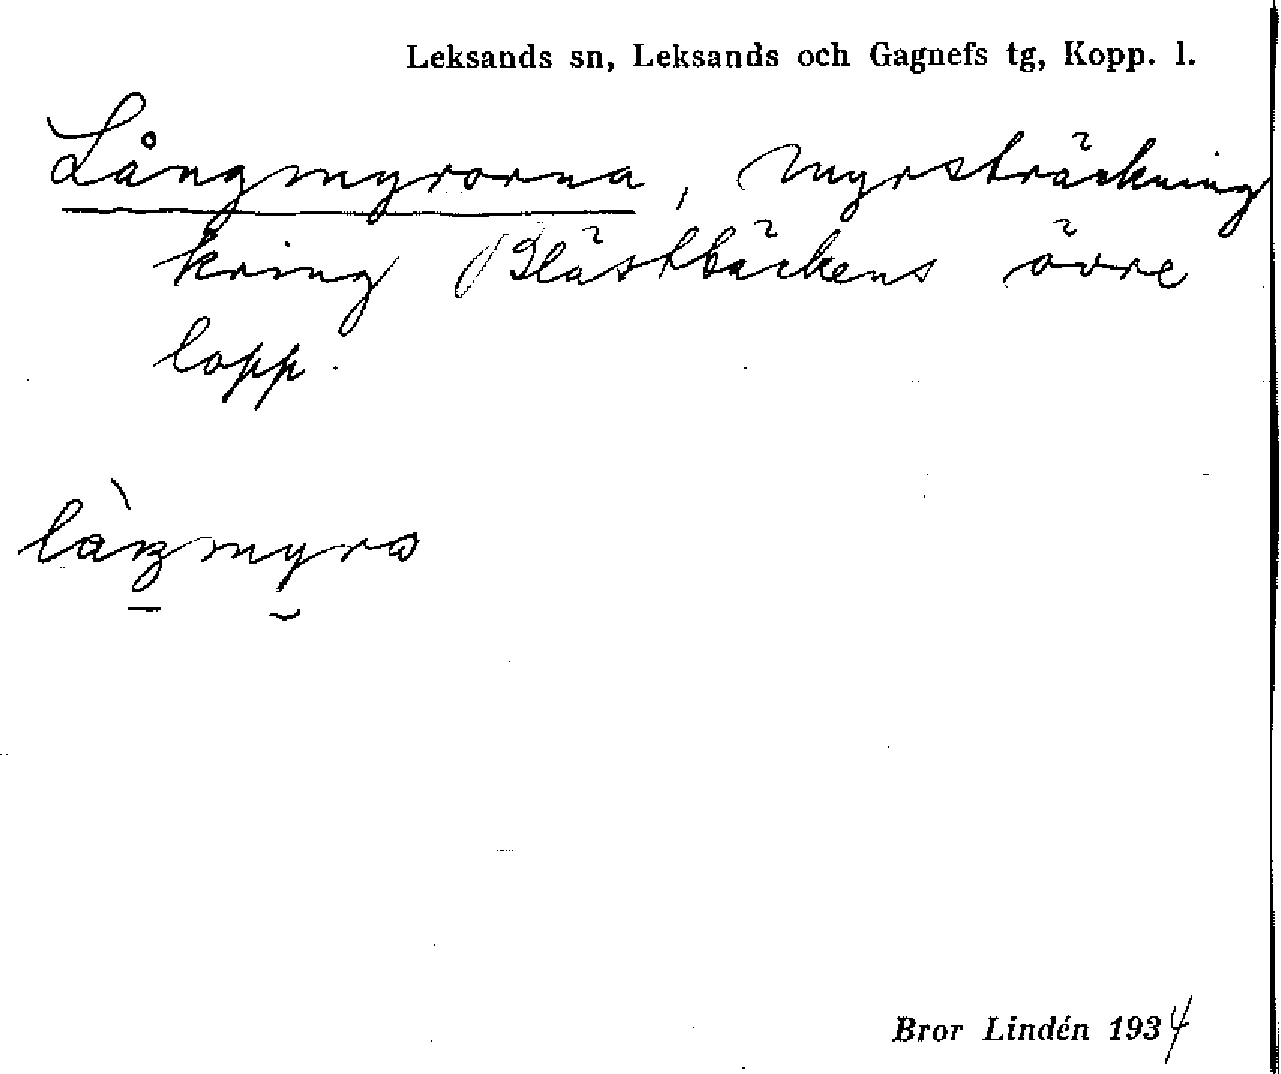 Leksands sn, Leksands och Gagnefs tg, Kopp. l.
Långmyrorna, Myrsträckning
kring Blästbäckens övre
lopp.
Bror Lindén 1934